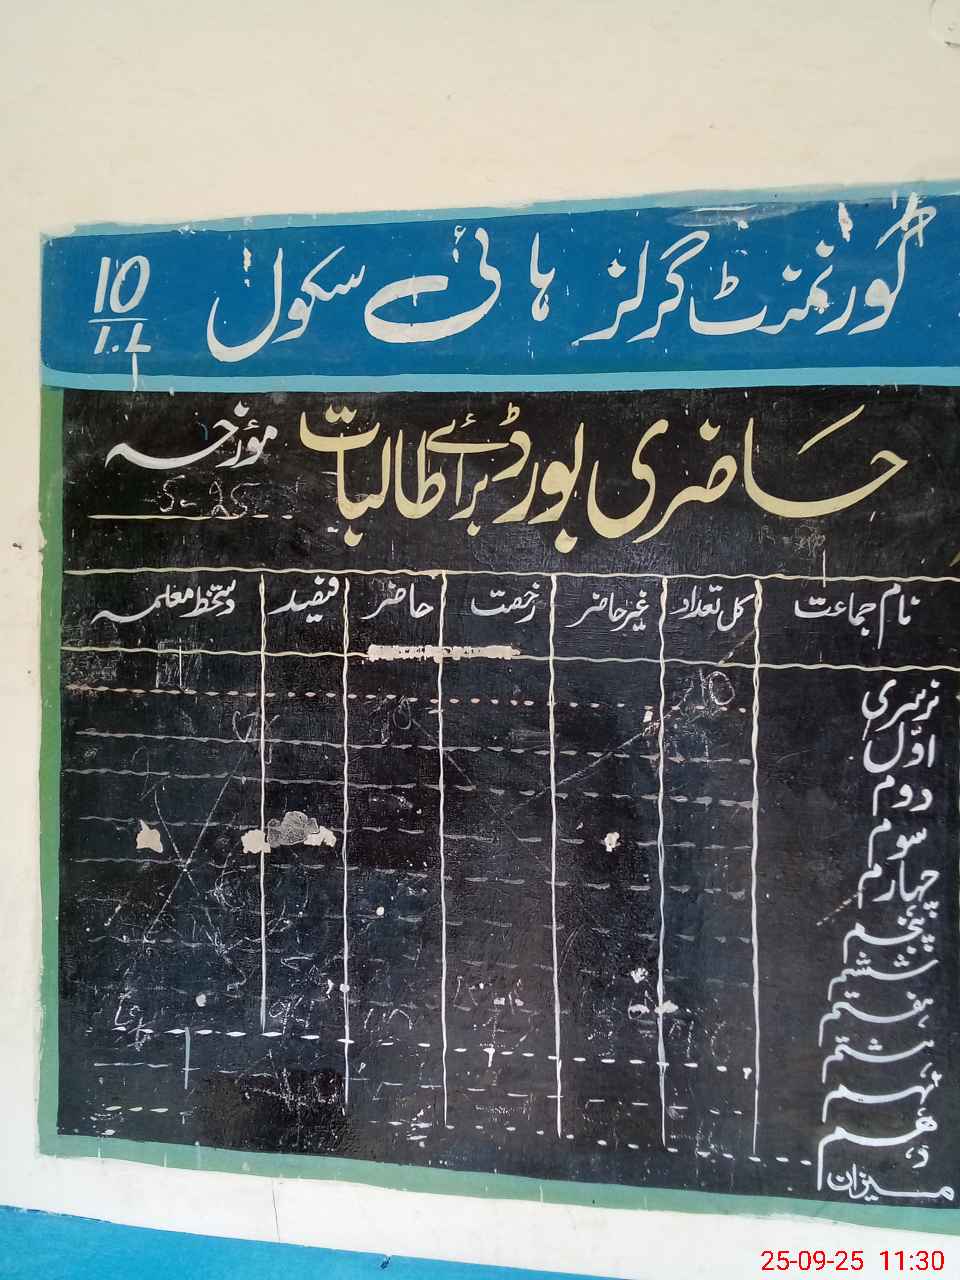 گورنمنٹ گرلز ہائی سکول 10/1.L
حاضری بورڈ برائے طالبات مؤرخہ
5-25
نام جماعت کل تعداد غیر حاضر رخصت حاضر فیصد دستخط معلمہ
نرسری
اوّل
دوم
سوم
چہارم
پنجم
ششم
ہفتم
ہشتم
نہم
دہم
میزان
25-09-25 11:30